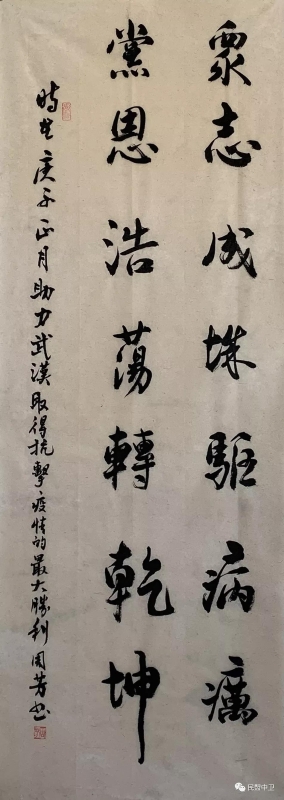 眾志成城驅病癘
黨恩浩蕩轉乾坤
時在庚子正月助力武漢取得抗擊疫情的最大勝利 周芳書
民智中卫